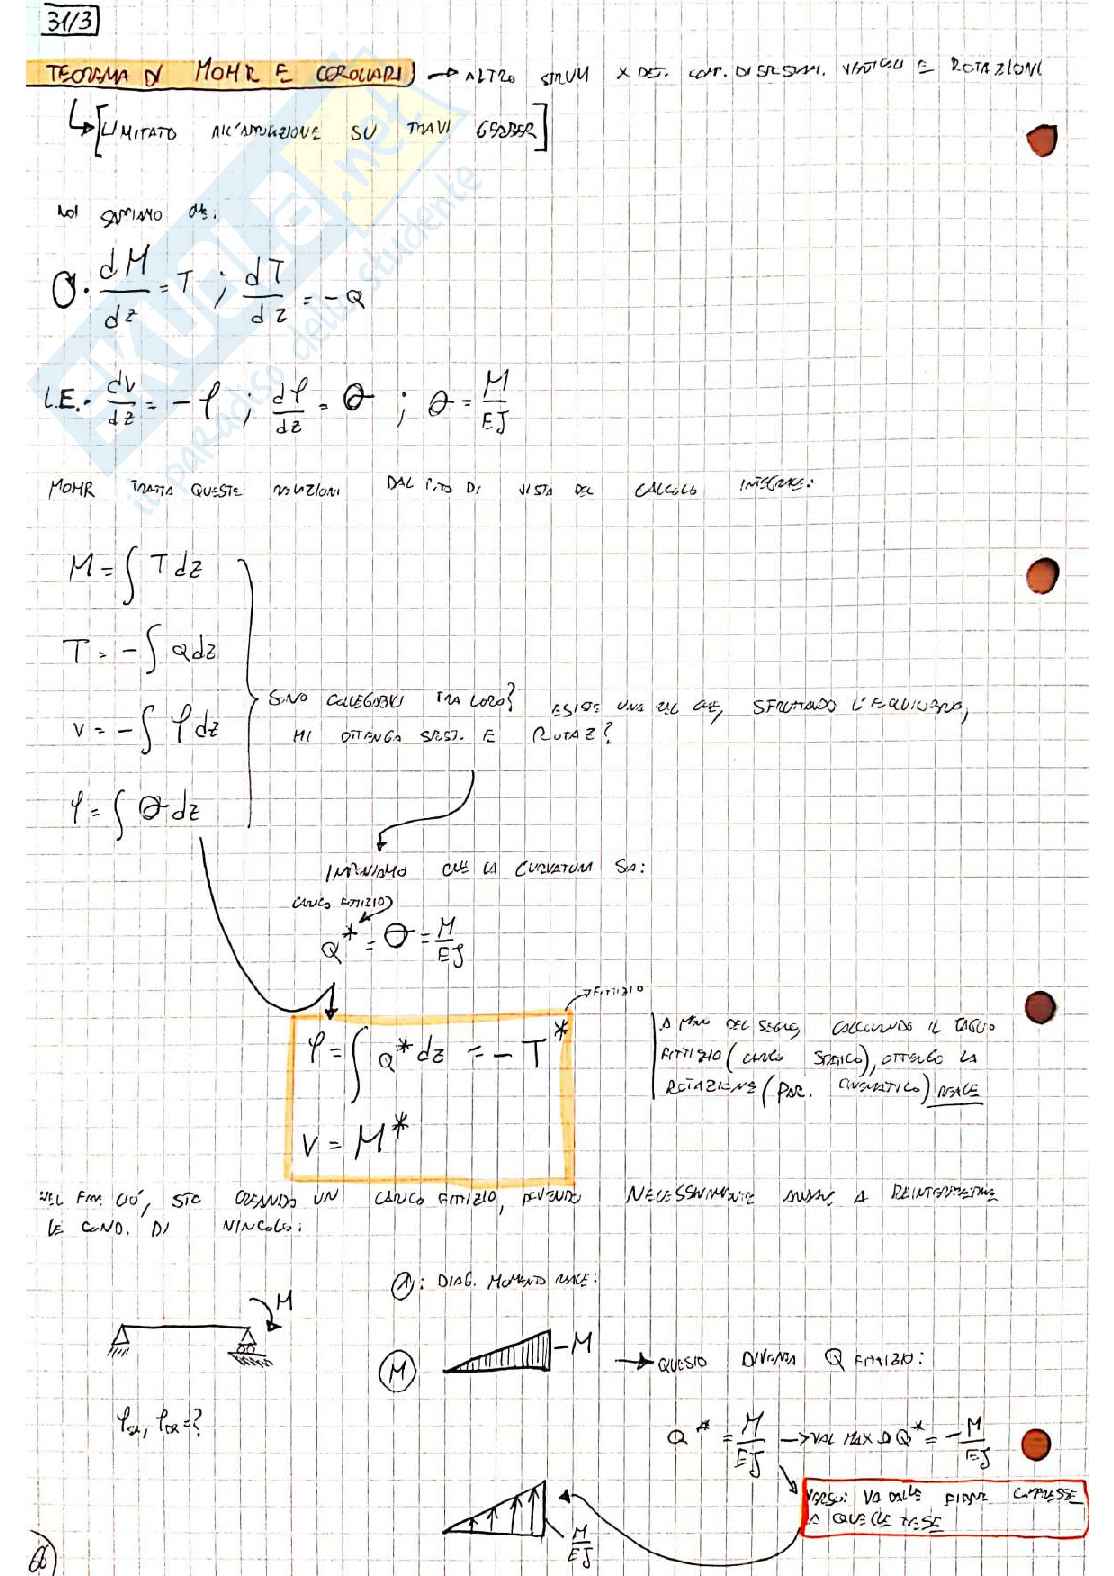 31/3
TEOREMA DI MOHR E COROLLARI → ALTRO STRUM X DET. COMP. DI SPOSTAM. VERTICALI E ROTAZIONI
↳ [LIMITATO ALL'APPLICAZIONE SU TRAVI GERBER]
NOI SAPPIAMO CHE:
O. dM/dz = T ; dT/dz = -Q
L.E. - dv/dz = -φ ; dφ/dz = θ ; θ = M/EJ
MOHR TRATTA QUESTE RELAZIONI DAL P.TO DI VISTA DEL CALCOLO INTEGRALE:
M = ∫ T dz
T = -∫ Q dz
v = -∫ φ dz
φ = ∫ θ dz
SONO COLLEGABILI TRA LORO? ESISTE UNA REL CHE, SFRUTTANDO L'EQUILIBRIO,
MI OTTENGA SPOST. E ROTAZ?
IMPONIAMO CHE LA CURVATURA SIA:
CARICO FITTIZIO
Q* = θ = M/EJ
→ FITTIZIO
φ = ∫ Q* dz = -T*
v = M*
A MENO DEL SEGNO, CALCOLANDO IL TAGLIO
FITTIZIO (CARICO STATICO), OTTENGO LA
ROTAZIONE (PAR. CINEMATICO) REALE
NEL FAR CIÒ, STO CREANDO UN CARICO FITTIZIO, DOVENDO NECESSARIAMENTE ANDARE A REINTERPRETARE
LE COND. DI VINCOLO:
①: DIAG. MOMENTO REALE:
M
M
-M
→ QUESTO DIVENTA Q FITTIZIO:
Q* = M/EJ → VAL MAX DI Q* = -M/EJ
VERSO: VA DALLE FIBRE COMPRESSE
A QUELLE TESE
M/EJ